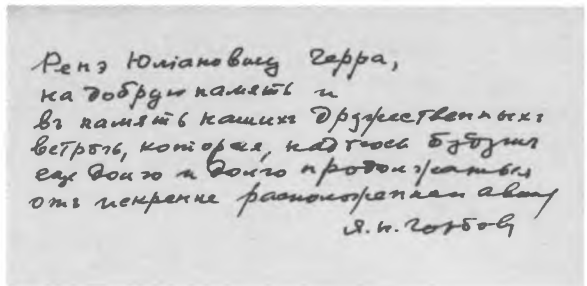 Ренэ Юліановичу Герра,
на добрую память и
въ память нашихъ дружественныхъ
встрѣчъ, которыя, надѣюсь будутъ
еще долго и долго продолжаться
отъ искренне расположеннаго автора
Я.Н. Горбовъ